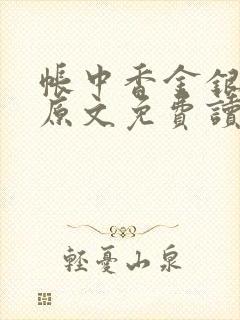 帳中香金銀
原文免費讀
輕憂山泉